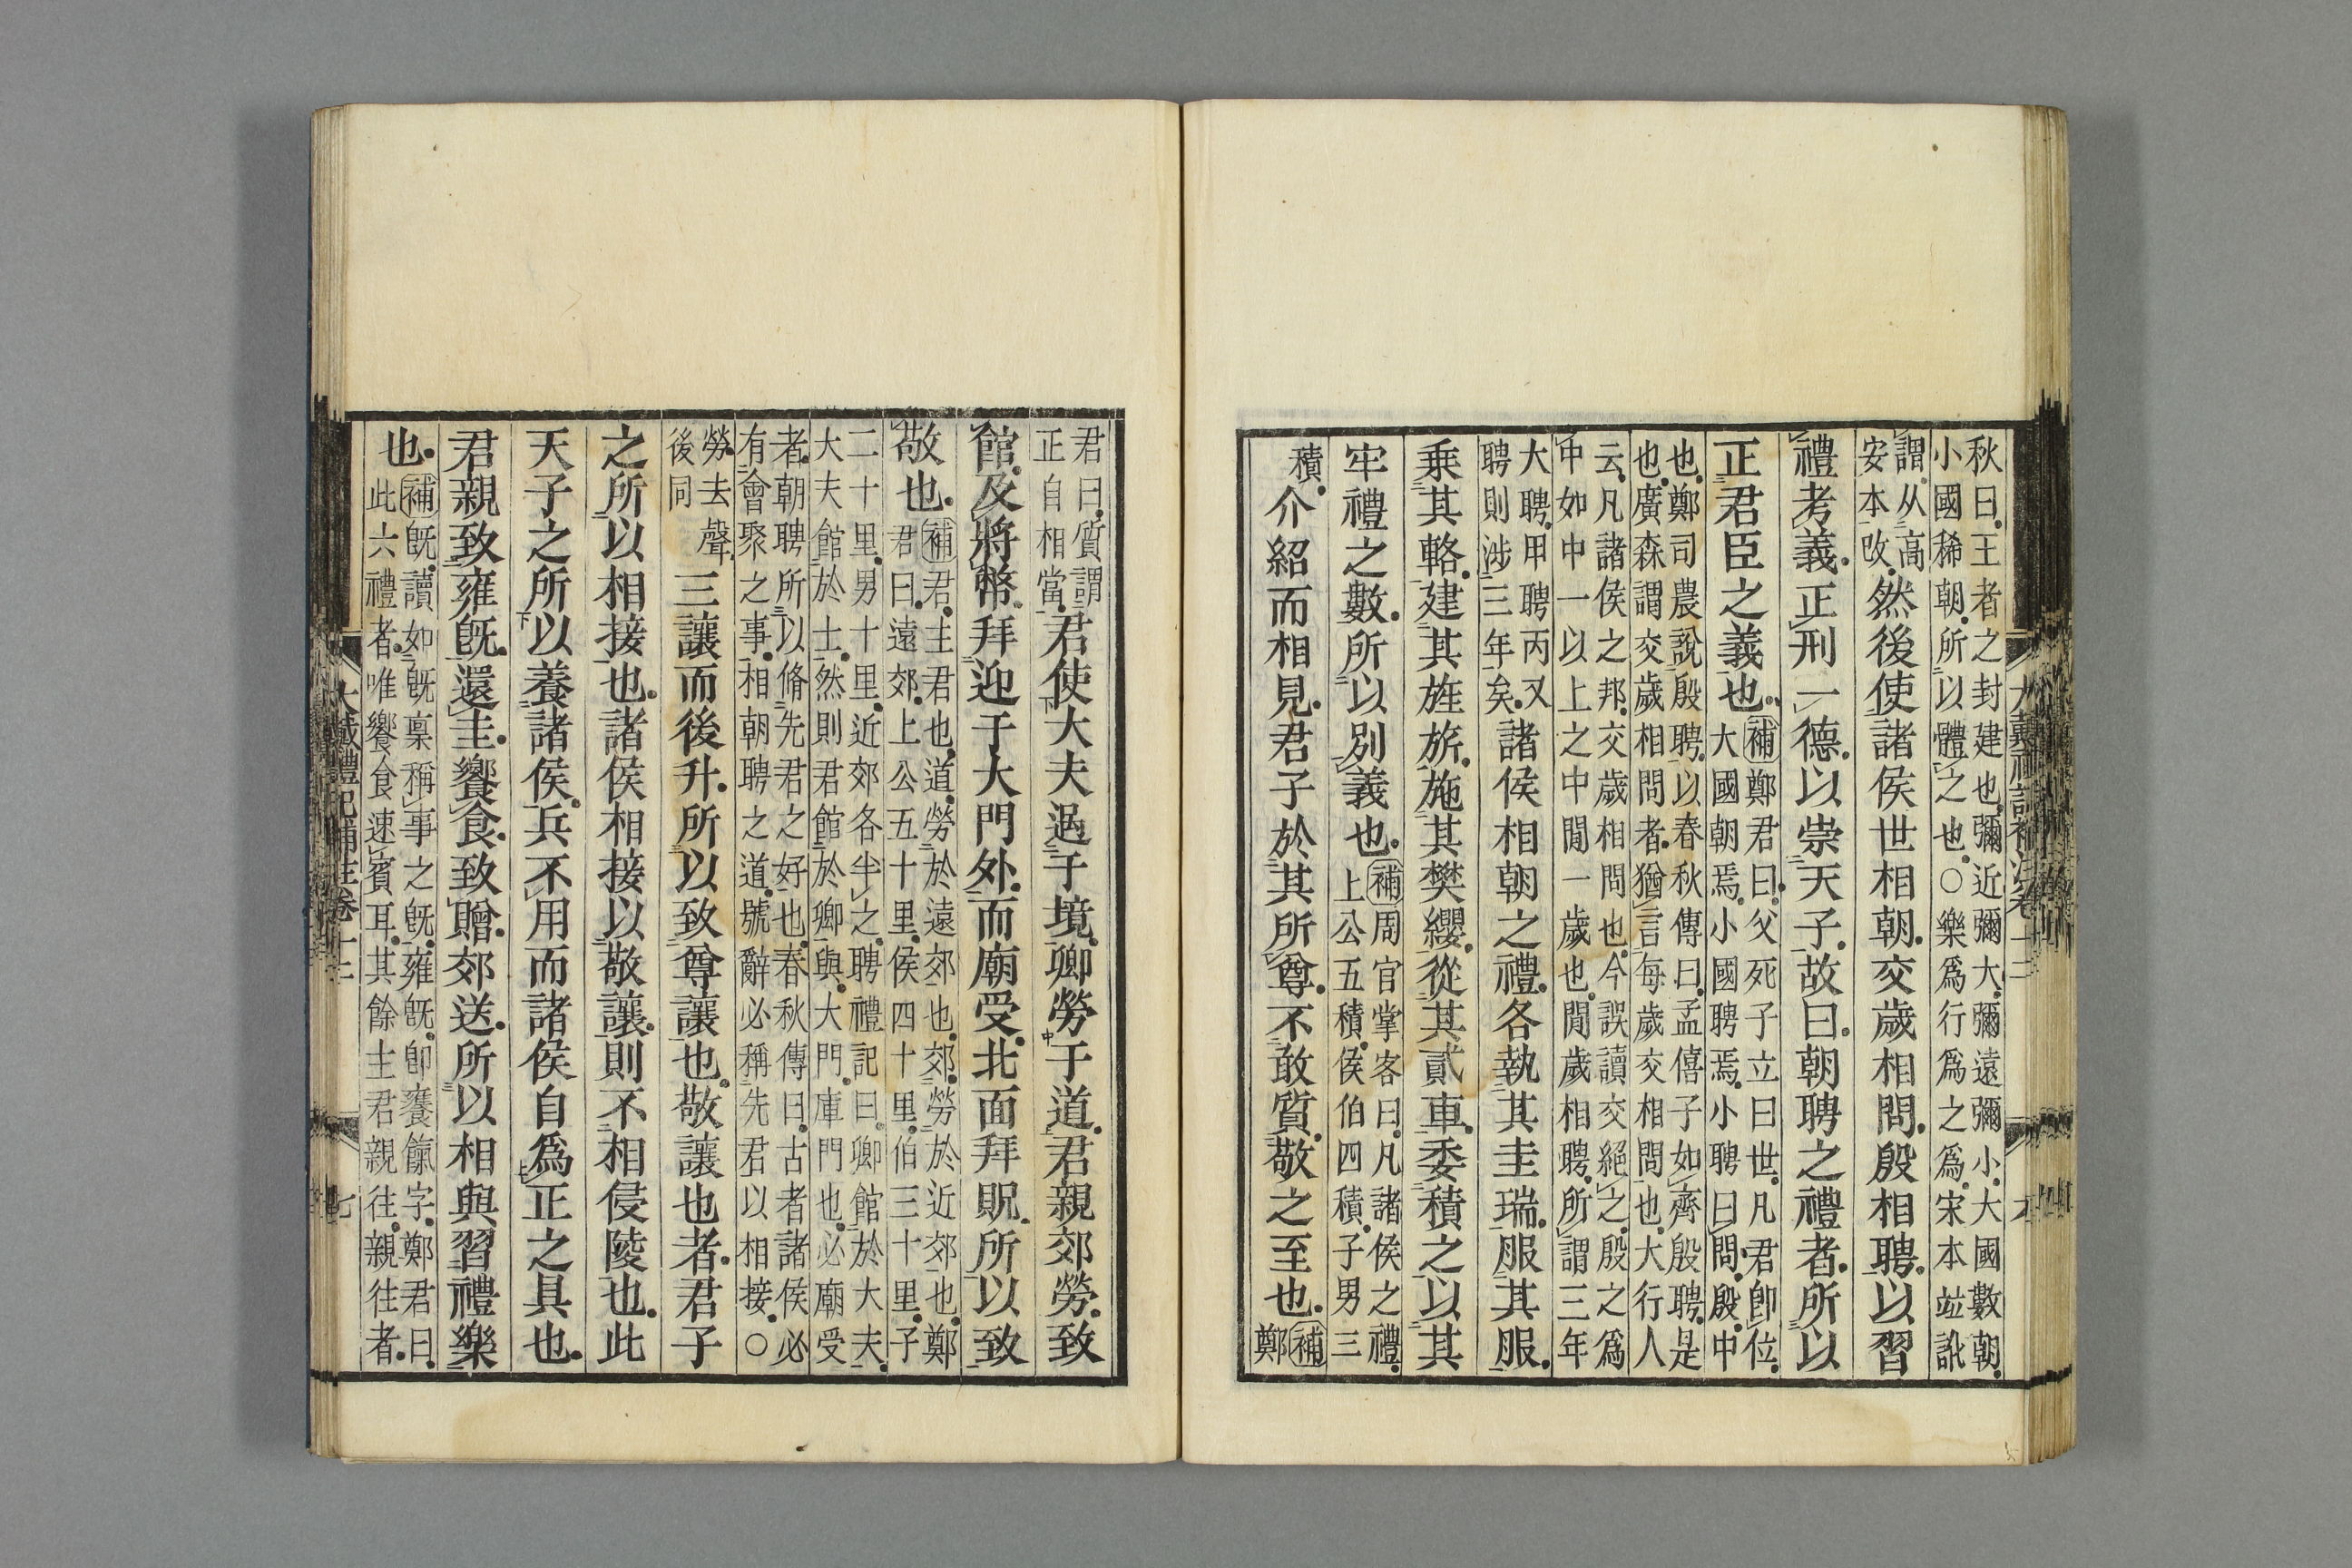 秋曰王者之封建也彌近彌大彌遠彌小大國數朝
小國稀朝所以體之也○樂爲行爲之爲宋本竝訛
謂从高
安本改
然後使諸侯世相朝交歲相問殷相聘以習
禮考義正刑一德以崇天子故曰朝聘之禮者所以
正君臣之義也
補鄭君曰父死子立曰世凡君卽位
大國朝焉小國聘焉小聘曰問殷中
也鄭司農說殷聘以春秋傳曰孟僖子如齊殷聘是
也廣森謂交歲相問者猶言每歲交相問也大行人
云凡諸侯之邦交歲相問也今誤讀交絕之殷之爲
中如中一以上之中閒一歲也閒歲相聘所謂三年
大聘甲聘丙又
聘則涉三年矣
諸侯相朝之禮各執其圭瑞服其服
乗其輅建其旌旂施其樊纓從其貳車委積之以其
牢禮之數所以別義也
補周官掌客曰凡諸侯之禮
上公五積侯伯四積子男三
積
介紹而相見君子於其所尊不敢質敬之至也
補
鄭
君曰質謂
正自相當
君使大夫迓于境卿勞于道君親郊勞致
館及將幣拜迎于大門外而廟受北面拜貺所以致
敬也
補君主君也道勞於遠郊也郊勞於近郊也鄭
君曰遠郊上公五十里侯四十里伯三十里子
二十里男十里近郊各半之聘禮記曰卿館於大夫
大夫館於士然則君館於卿與大門庫門也必廟受
者朝聘所以脩先君之好也春秋傳曰古者諸侯必
有會聚之事相朝聘之道號辭必稱先君以相接○
勞去聲
後同
三讓而後升所以致尊讓也敬讓也者君子
之所以相接也諸侯相接以敬讓則不相侵陵也此
天子之所以養諸侯兵不用而諸侯自爲正之具也
君親致雍旣還圭饗食致贈郊送所以相與習禮樂
也
補旣讀如旣稟稱事之旣雍旣卽饔餼字鄭君曰
此六禮者唯饗食速賓耳其餘主君親往親往者
大戴禮記補注卷十二
七